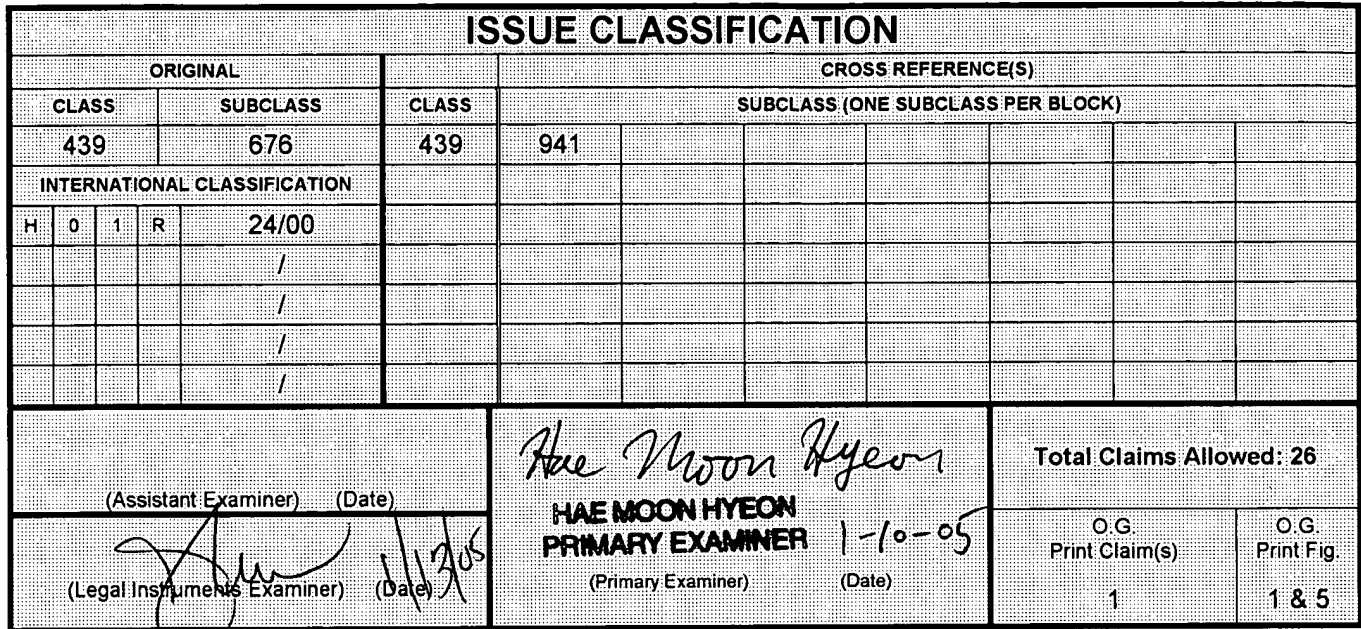 ISSUE CLASSIFICATION
ORIGINAL CROSS REFERENCE(S)
CLASS SUBCLASS CLASS SUBCLASS (ONE SUBCLASS PER BLOCK)
439 676 439 941
INTERNATIONAL CLASSIFICATION
H 0 1 R 24/00
/
/
/
/
(Assistant Examiner) (Date)
(Legal Instruments Examiner) (Date)
Hae Moon Hyeon
HAE MOON HYEON
PRIMARY EXAMINER 1-10-05
(Primary Examiner) (Date)
Total Claims Allowed: 26
O.G.
Print Claim(s)
1
O.G.
Print Fig.
1 & 5